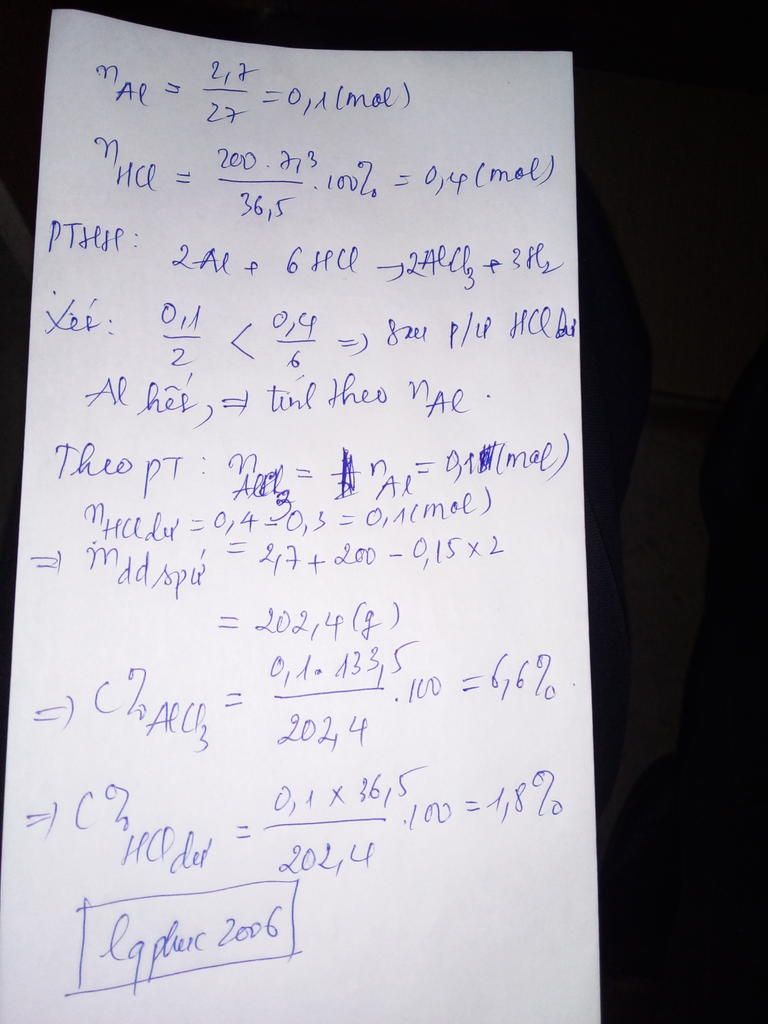 nAl = 2,7/27 = 0,1 (mol)
nHCl = 200 . 7,3/36,5 . 100% = 0,4 (mol)
PTHH: 2Al + 6HCl → 2AlCl3 + 3H2
Xét: 0,1/2 < 0,4/6 => Sau p/ứ HCl dư
Al hết, => tính theo nAl.
Theo PT: nAlCl3 = nAl = 0,1 (mol)
nHCl dư = 0,4 - 0,3 = 0,1 (mol)
=> mdd spứ = 2,7 + 200 - 0,15 x 2
= 202,4 (g)
=> C% AlCl3 = 0,1 . 133,5/202,4 . 100 = 6,6%.
=> C% HCl dư = 0,1 x 36,5/202,4 . 100 = 1,8%
lqphuc 2006